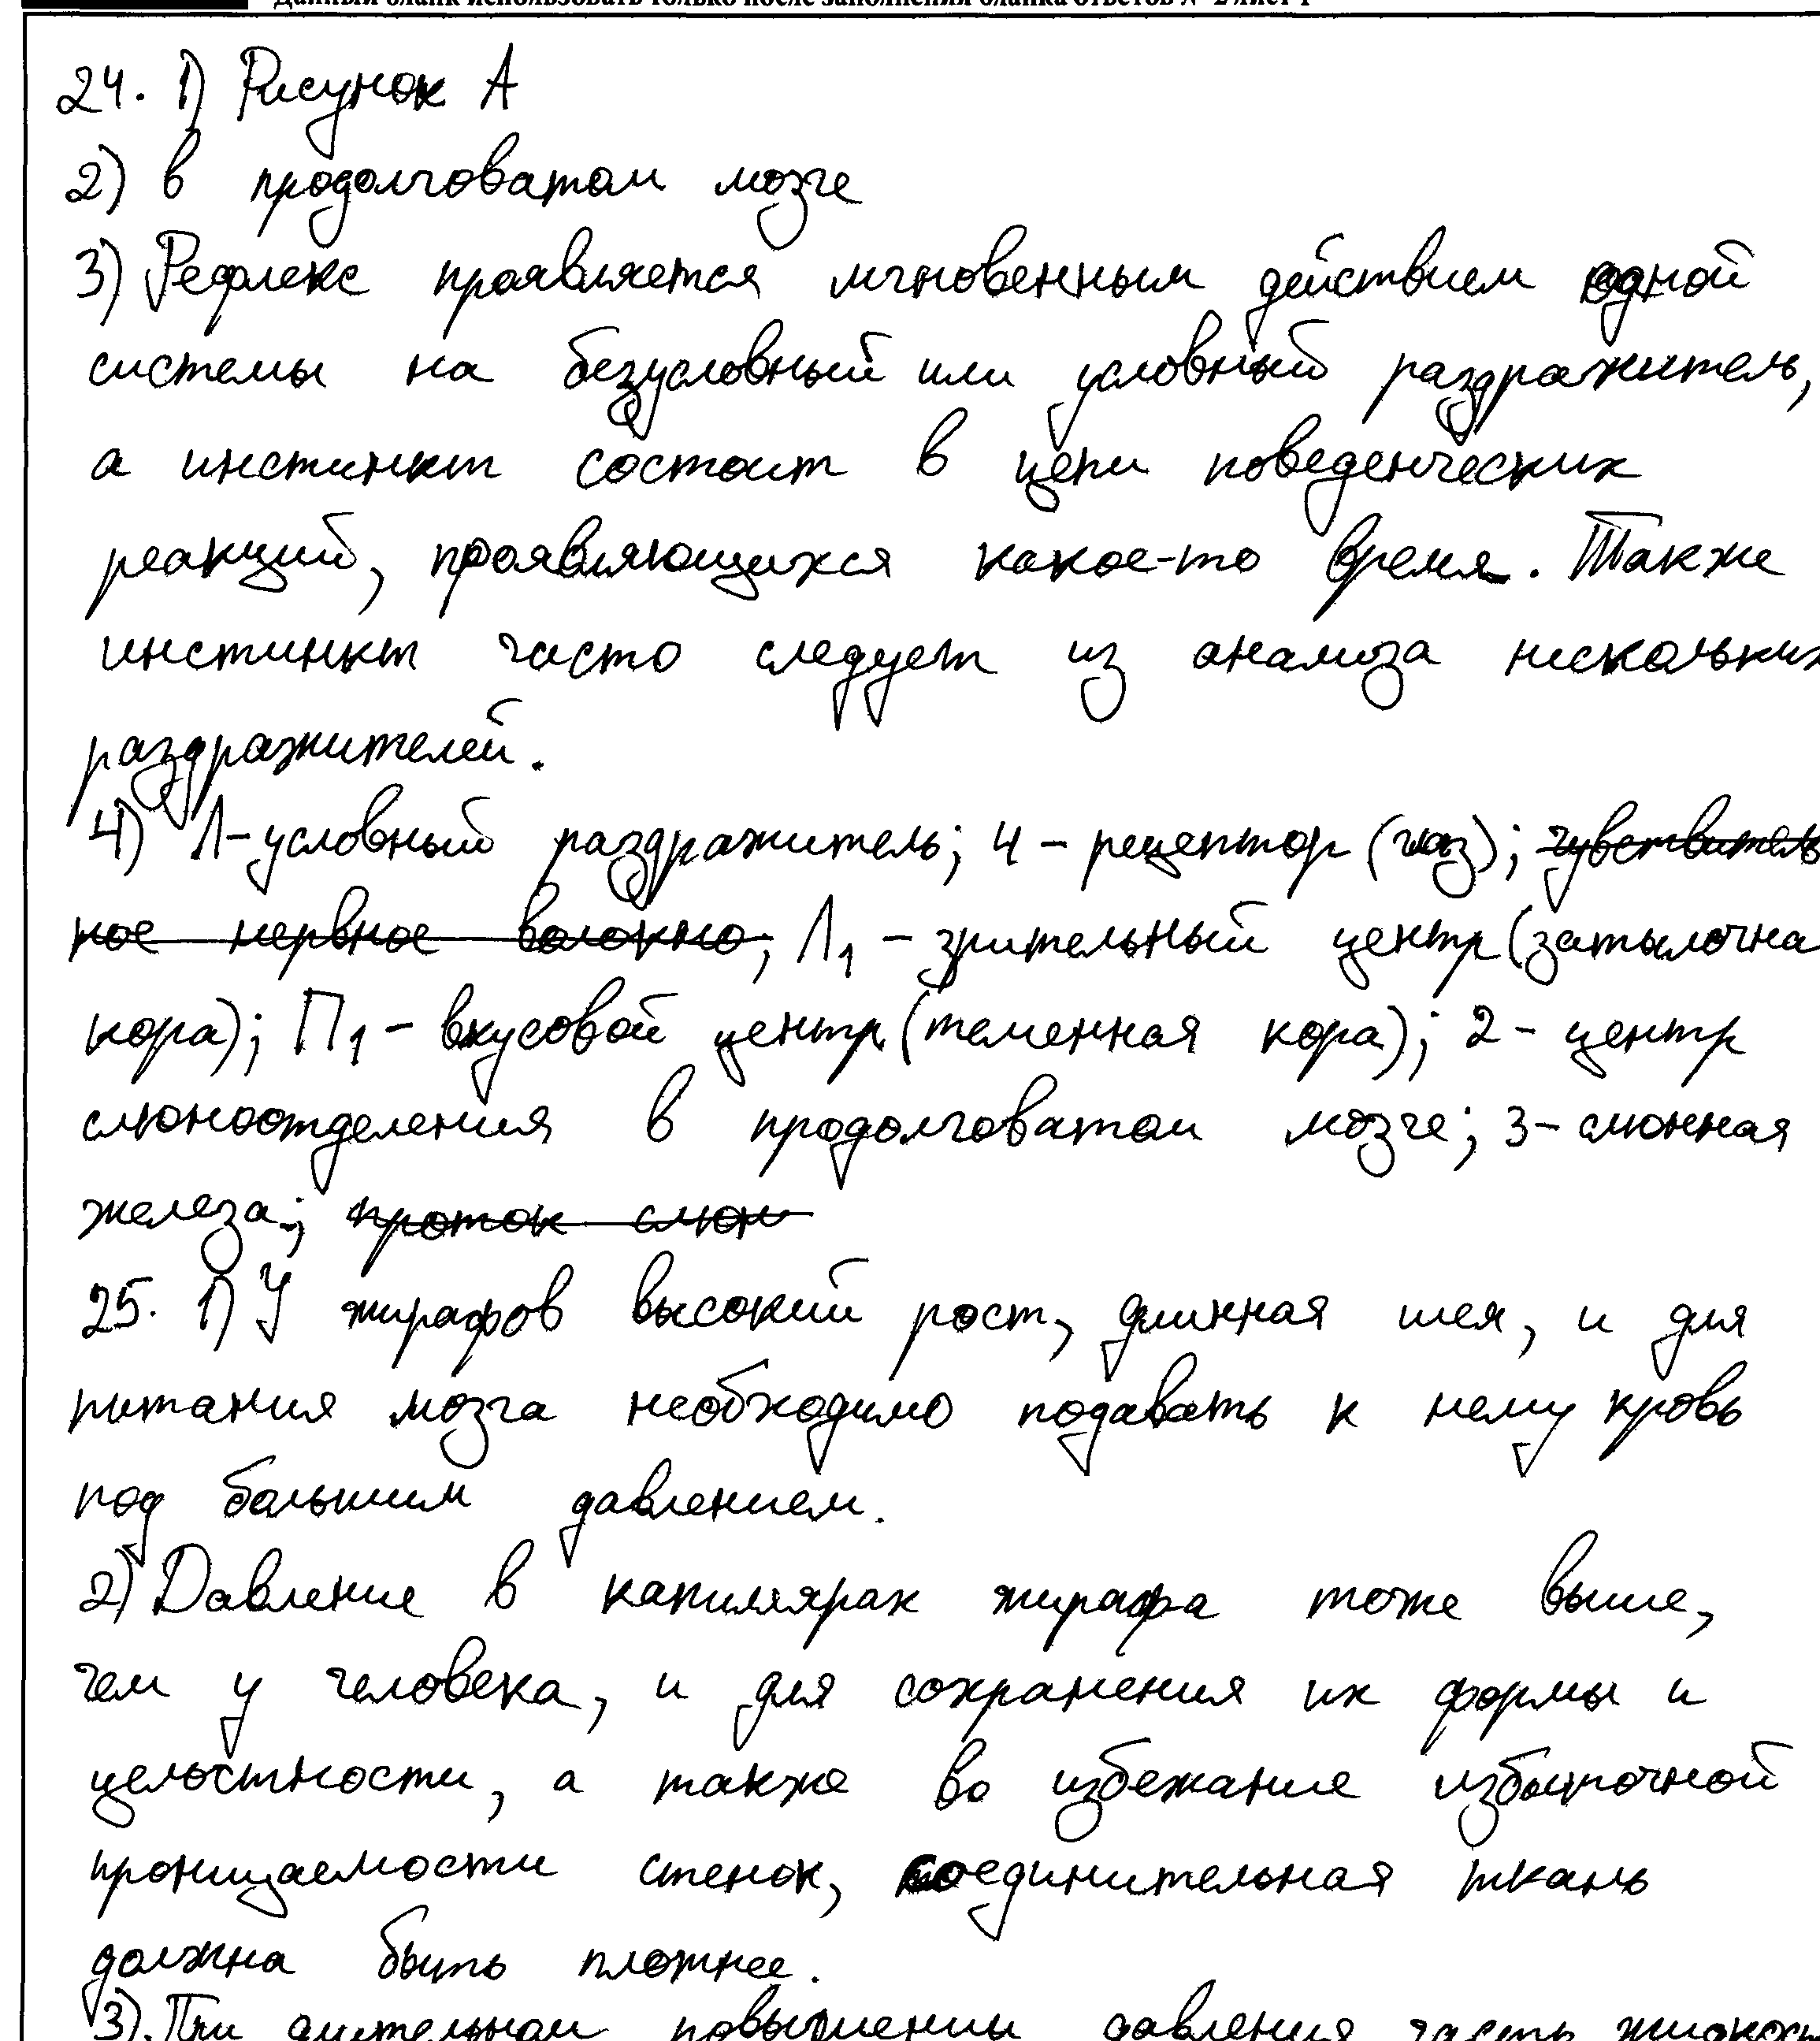 Данный бланк использовать только после заполнения бланка ответов № 2 лист 1
24. 1) Рисунок А
2) в продолговатом мозге
3) Рефлекс проявляется мгновенным действием одной
системы на безусловный или условный раздражитель,
а инстинкт состоит в цепи поведенческих
реакций, проявляющихся какое-то время. Также
инстинкт часто следует из анализа нескольких
раздражителей.
4) Л-условный раздражитель; 4 - рецептор (глаз); чувствитель
ное нервное волокно; Л1 - зрительный центр (затылочна
кора); П1 - вкусовой центр (теменная кора); 2 - центр
слюноотделения в продолговатом мозге; 3 - слюнная
железа; проток слюн
25. 1) У жирафов высокий рост, длинная шея, и для
питания мозга необходимо подавать к нему кровь
под большим давлением.
2) Давление в капиллярах жирафа тоже выше,
чем у человека, и для сохранения их формы и
целостности, а также во избежание избыточной
проницаемости стенок, соединительная ткань
должна быть плотнее.
3). При длительном повышении давления часть жидкос